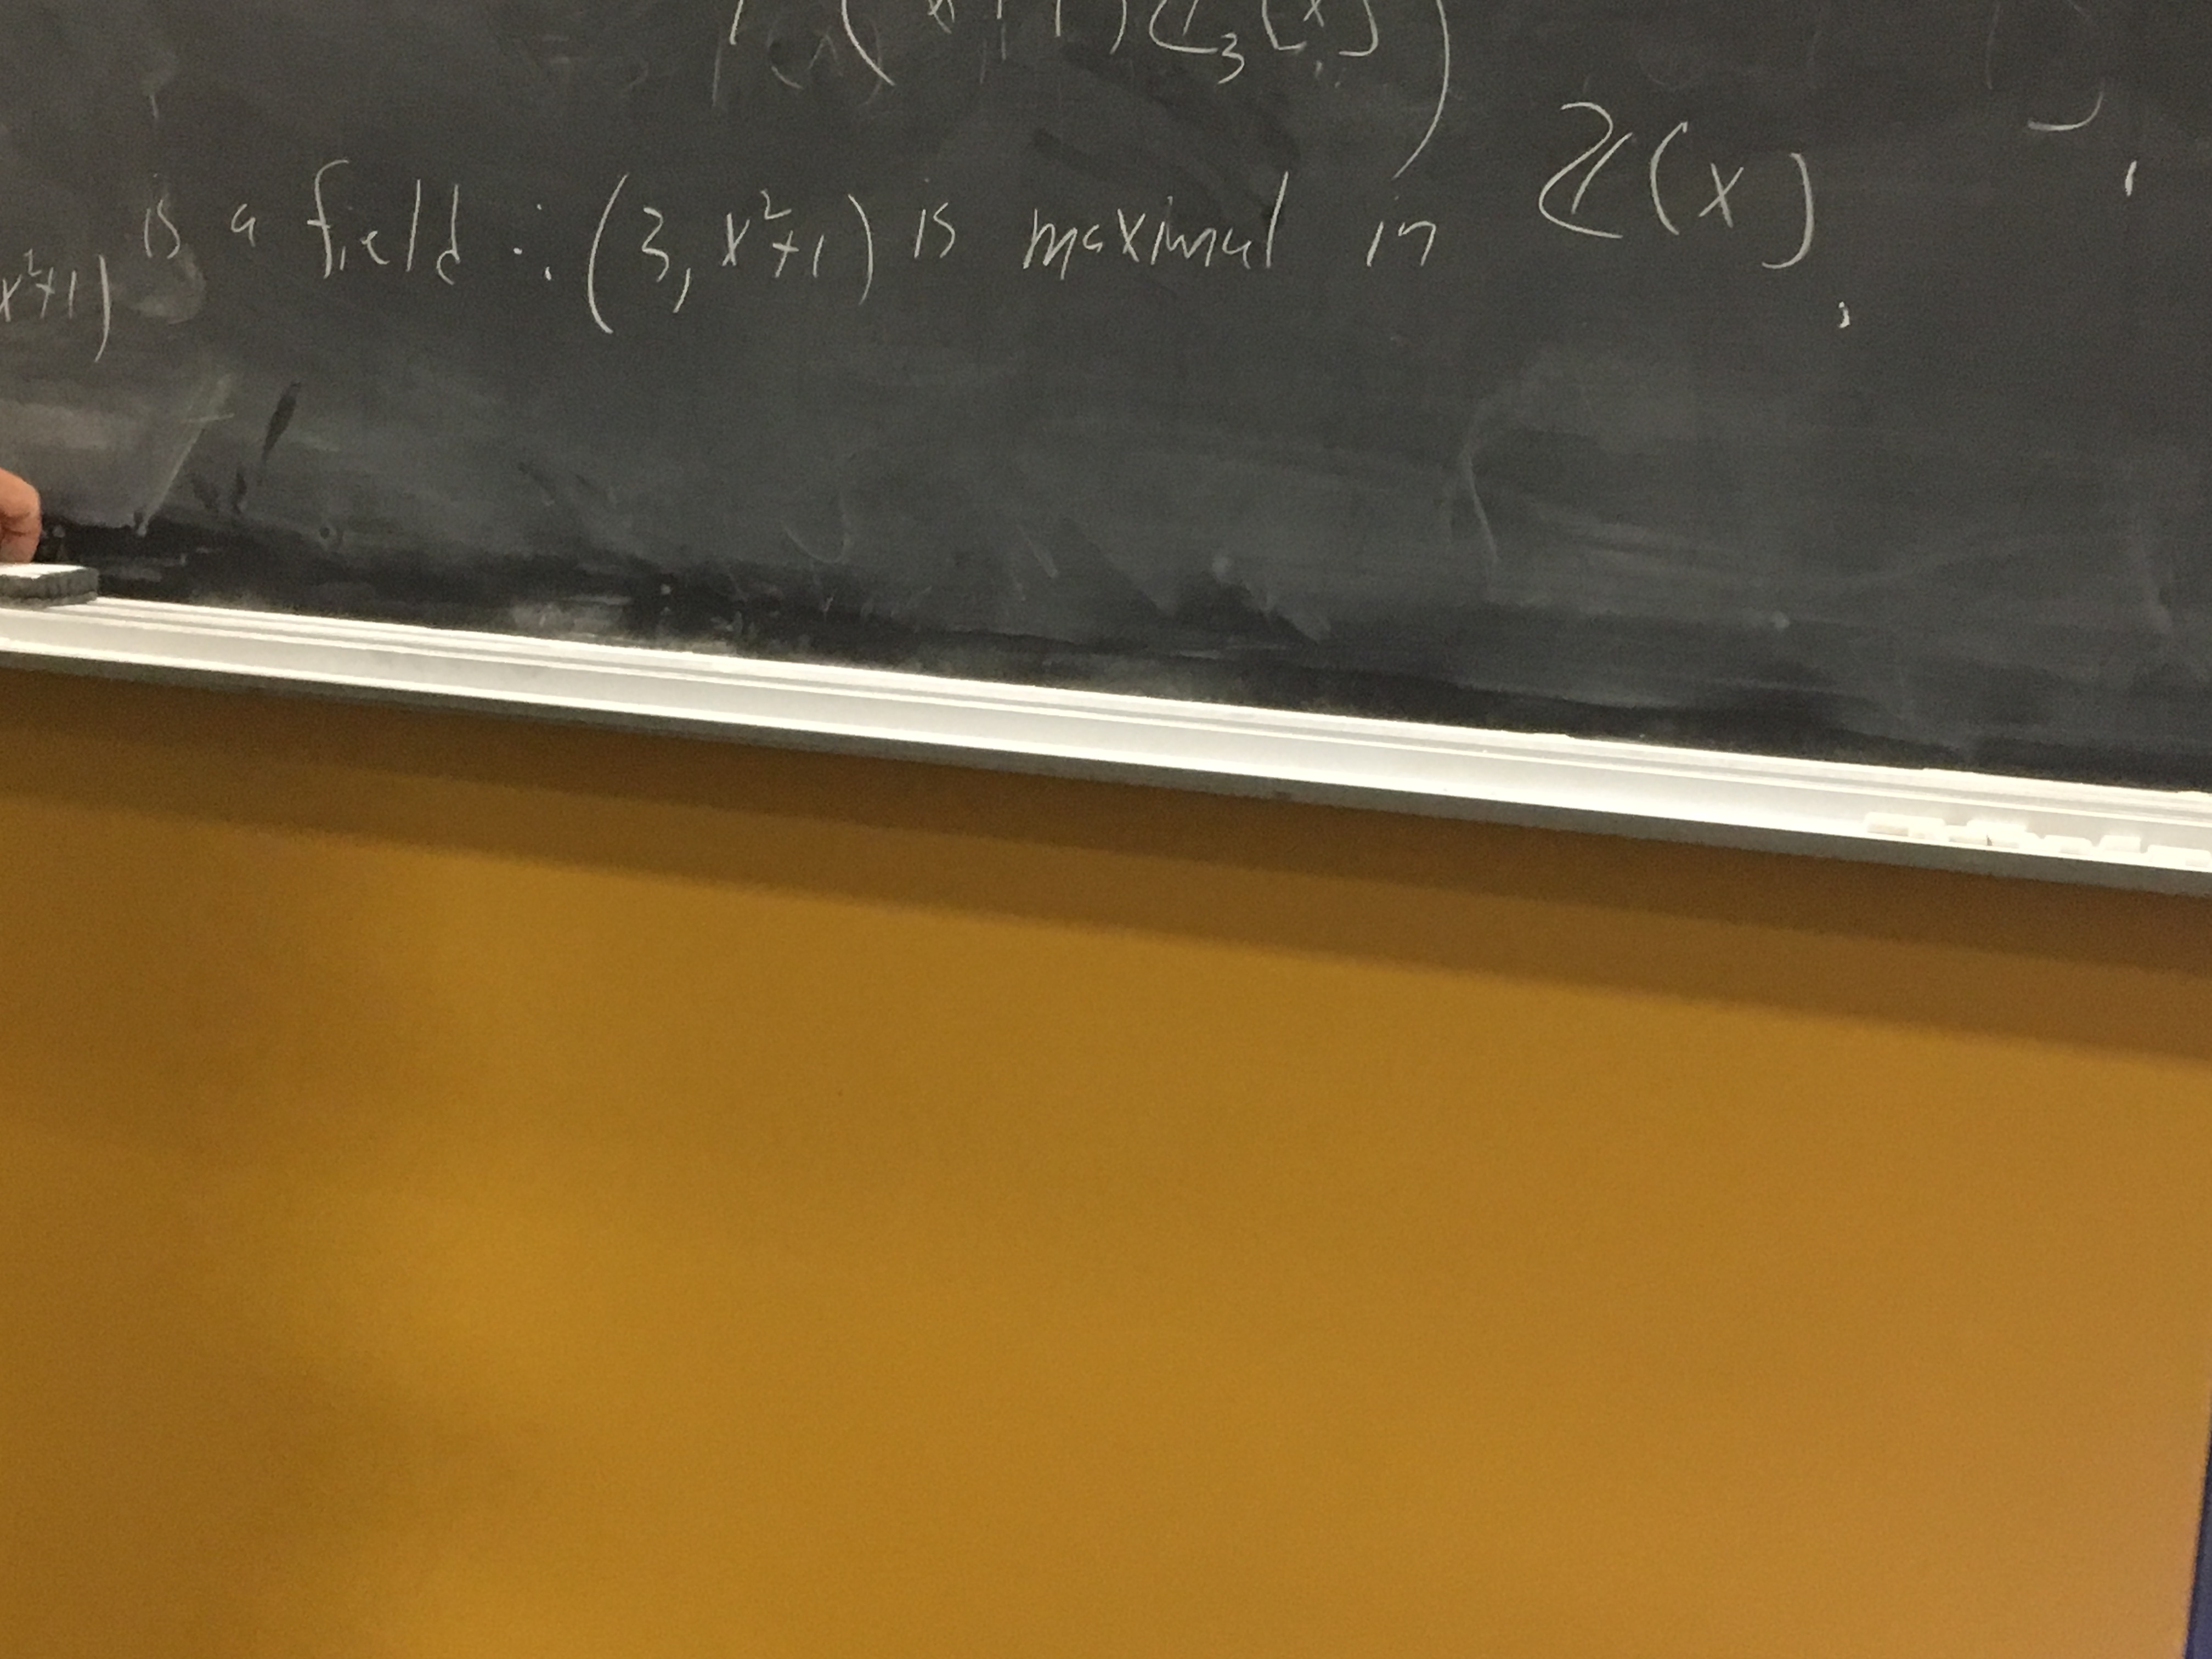 (x²+1)ℤ₃[x])
x²+1) is a field ∴ (3, x²+1) is maximal in ℤ[x].